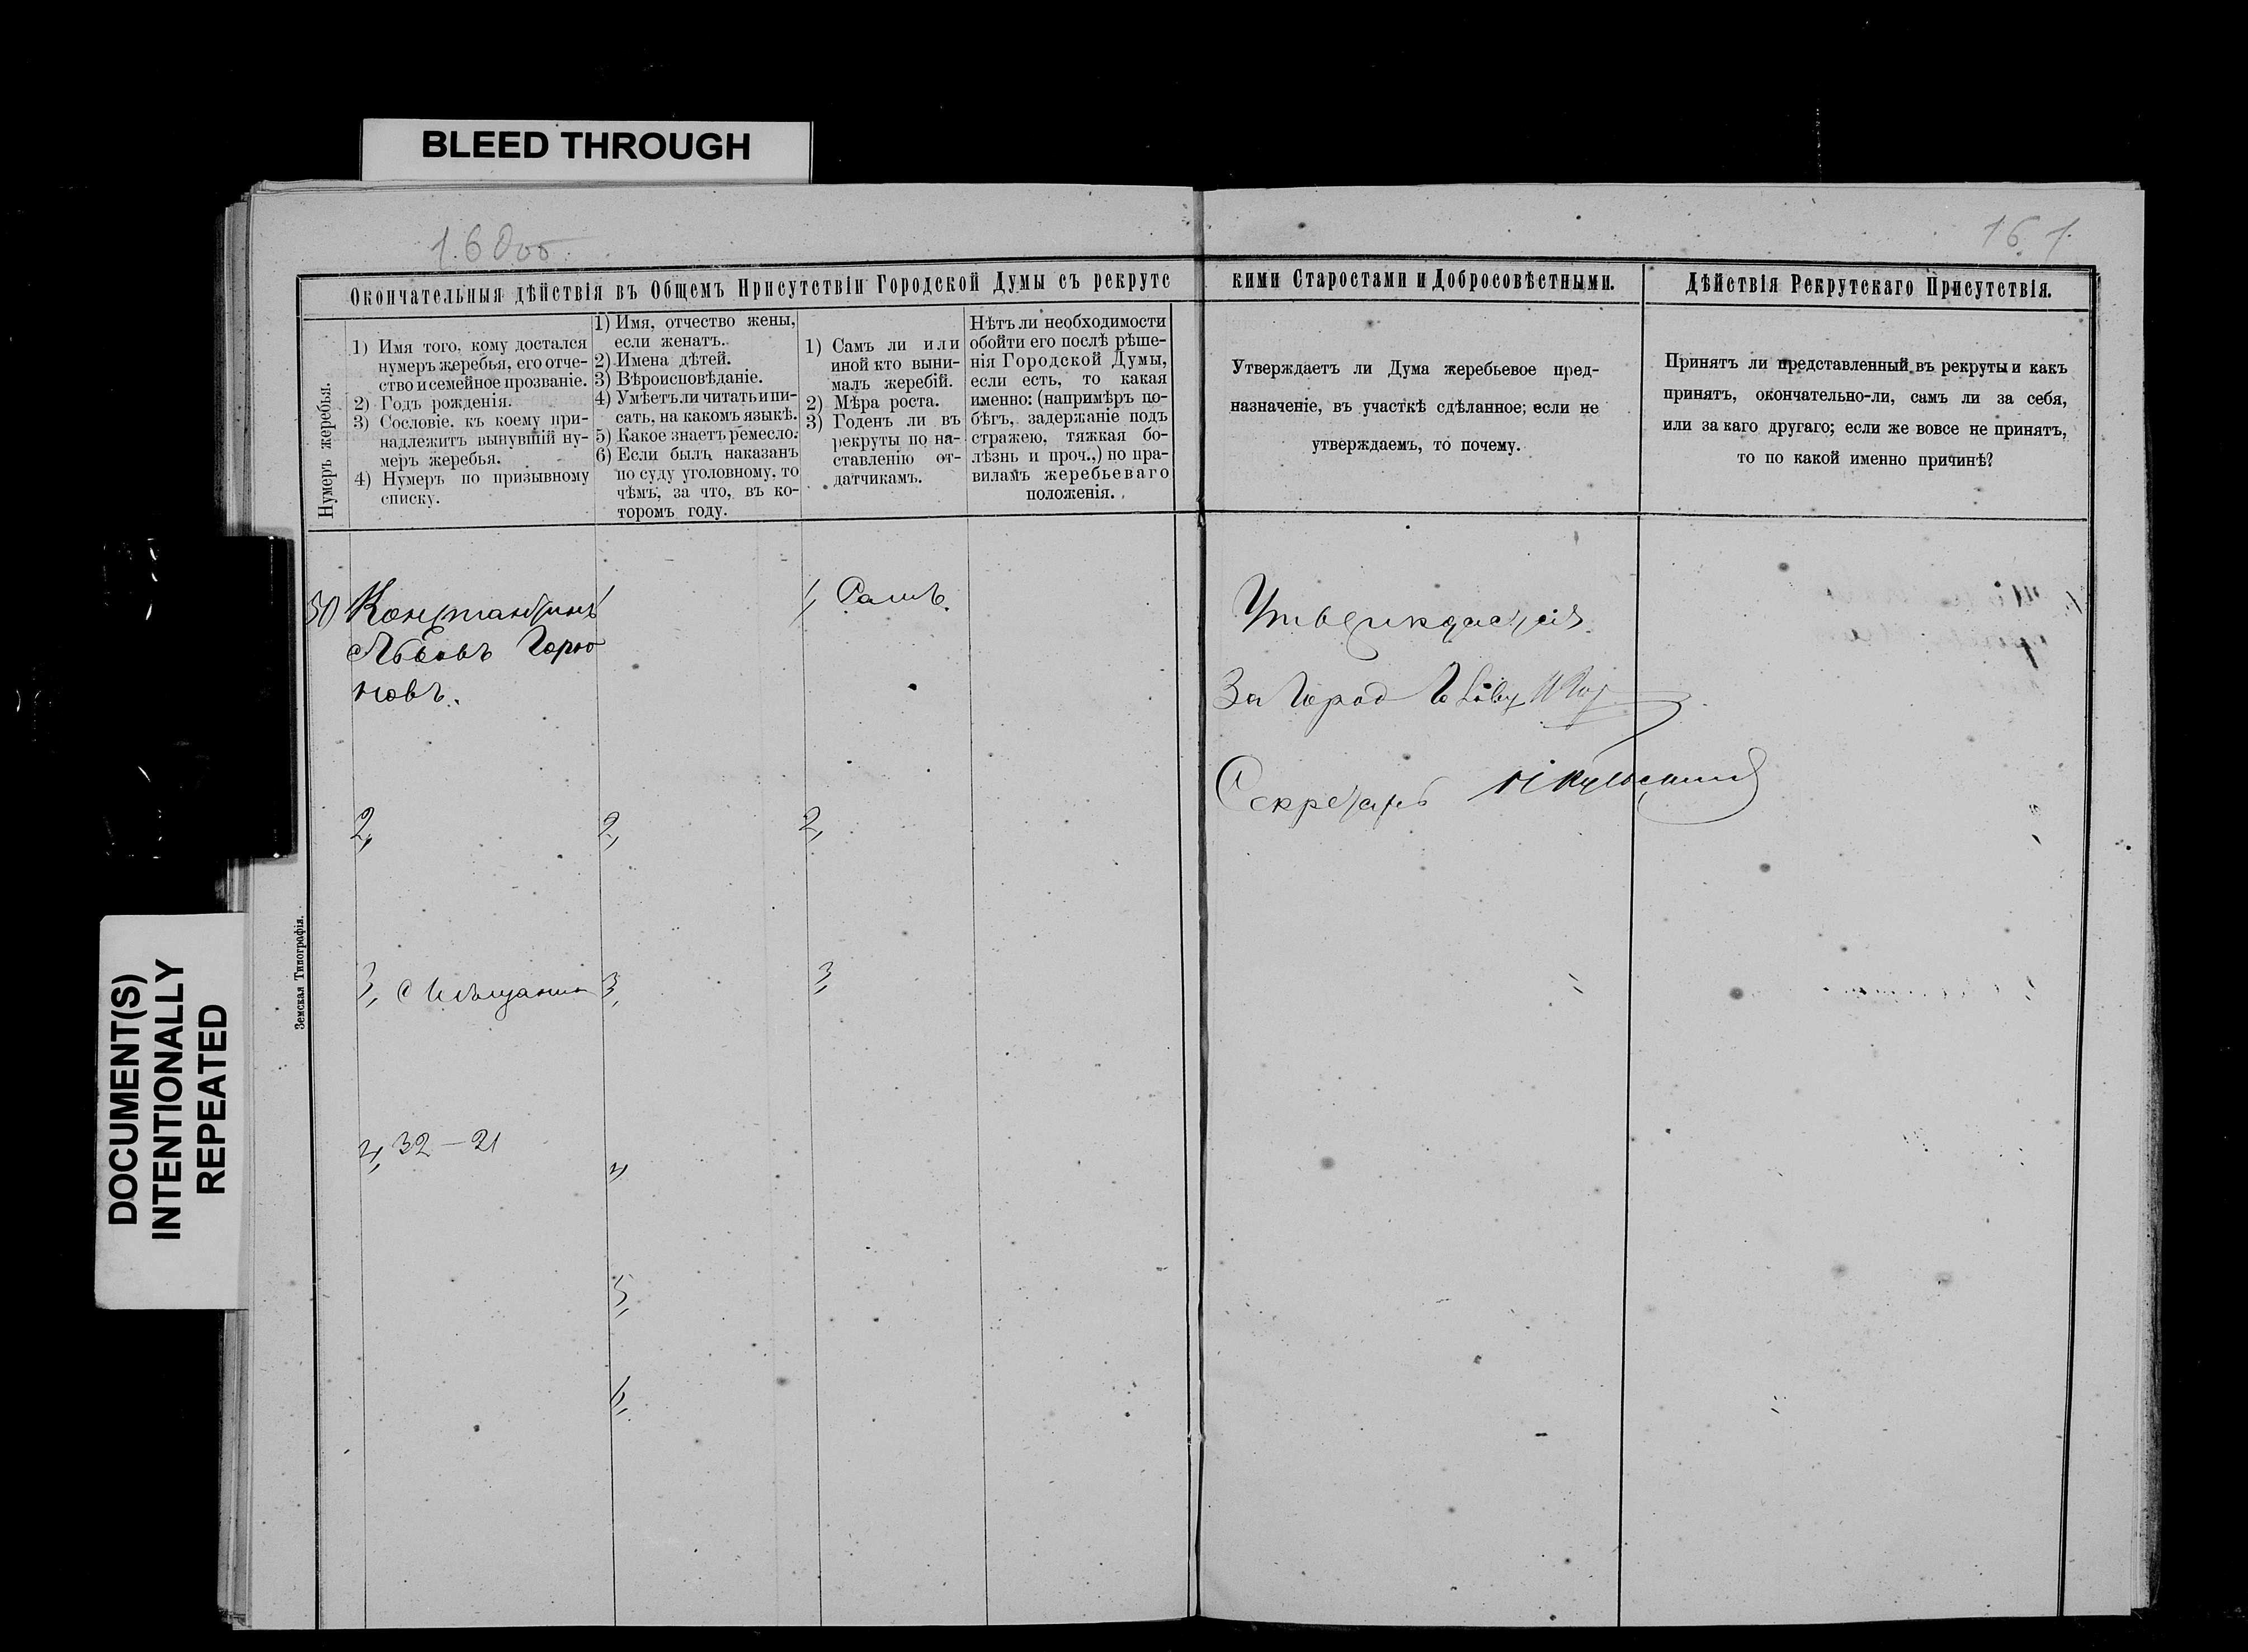 BLEED THROUGH
160 об.
161
Окончательныя дѣйствія въ Общемъ Присутствіи Городской Думы съ рекрутс
кими Старостами и Добросовѣстными.
Дѣйствія Рекрутскаго Присутствія.
Нумеръ жеребья.
1) Имя того, кому достался
нумеръ жеребья, его отче-
ство и семейное прозваніе.
2) Годъ рожденія.
3) Сословіе, къ коему при-
надлежитъ вынувшій ну-
меръ жеребья.
4) Нумеръ по призывному
списку.
1) Имя, отчество жены,
если женатъ.
2) Имена дѣтей.
3) Вѣроисповѣданіе.
4) Умѣетъ ли читать и пи-
сать, на какомъ языкѣ.
5) Какое знаетъ ремесло.
6) Если былъ наказанъ
по суду уголовному, то
чѣмъ, за что, въ ко-
торомъ году.
1) Самъ ли или
иной кто выни-
малъ жеребій.
2) Мѣра роста.
3) Годенъ ли въ
рекруты по на-
ставленію от-
датчикамъ.
Нѣтъ ли необходимости
обойти его послѣ рѣше-
нія Городской Думы,
если есть, то какая
именно: (напримѣръ по-
бѣгъ, задержаніе подъ
стражею, тяжкая бо-
лѣзнь и проч.,) по пра-
виламъ жеребьеваго
положенія.
Утверждаетъ ли Дума жеребьевое пред-
назначеніе, въ участкѣ сдѣланное; если не
утверждаемъ, то почему.
Принятъ ли представленный въ рекруты и какъ
принятъ, окончательно-ли, самъ ли за себя,
или за каго другаго; если же вовсе не принятъ,
то по какой именно причинѣ?
50 Константинъ
Львовъ Горю
новъ.
2,
3, Мѣщанин
4, 32 — 21
1,
2,
3,
4,
5,
6,
1, Самъ.
2,
3,
Утверждается
За Город
Секретарь
Земская Типографія.
DOCUMENT(S)
INTENTIONALLY
REPEATED